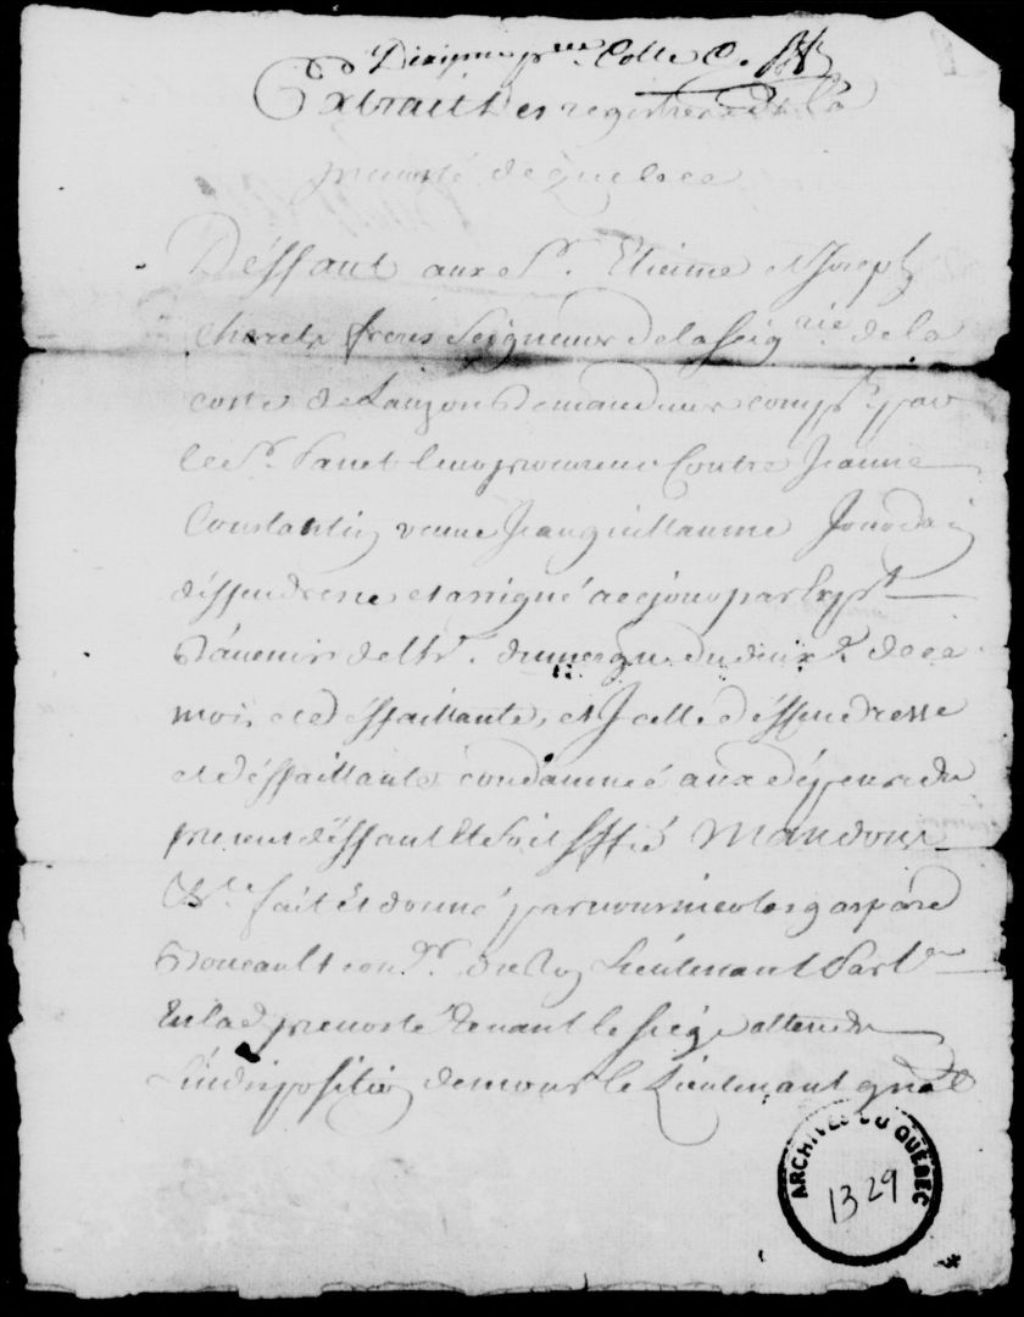 Dixieme p.ce Cotte C.
Extrait des registres de la
prevosté de quebec
Déffaut aux Srs. Etienne et Joseph
Charetz freres Seigneurs de la Seigrie. de la
coste de Lauzon Demandeurs comp.t par
le Sr. Panet leur procureur Contre Jeanne
Constantin veuve Jean guillaume Jourdain
déffendresse et assigné a ce jour par Expt
D'avenir de Me. du deuxe. de ce
mois et déffaillante, et Icelle déffendresse
et déffaillante condamnée aux dépens du
present déffaut Et soit Siffié Mandons
&te. fait et donné par nous nicolas gaspard
Boucault con.er du Roy Lieutenant Part.er
En lad prevosté Tenant le siege attendu
L'indisposition de monsr le Lieutenant gnal
ARCHIVES DU QUÉBEC
1329